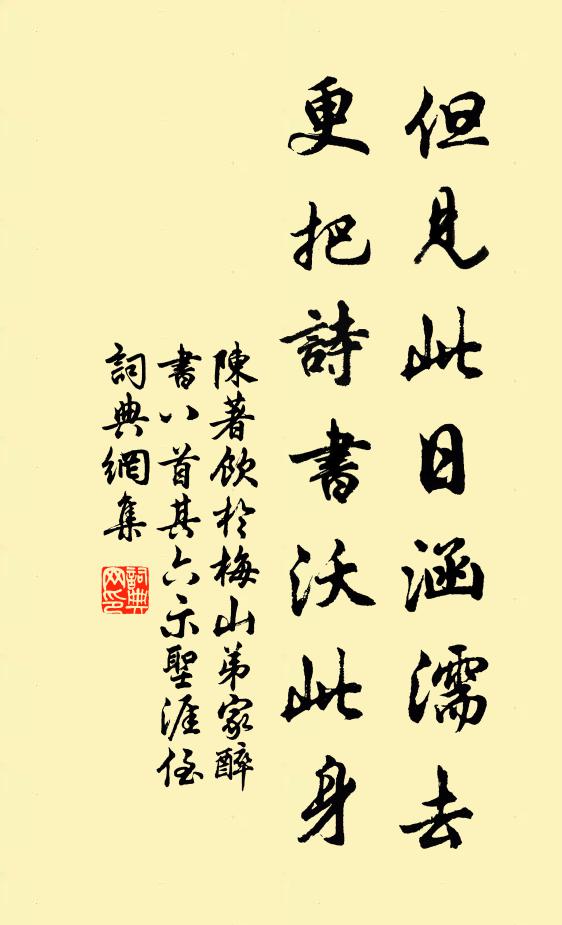 但見此日涵濡去
更把詩書沃此身
陳著飲於梅山弟家醉
書八首其六示聖涯侄
詞典網集
詞典
网印